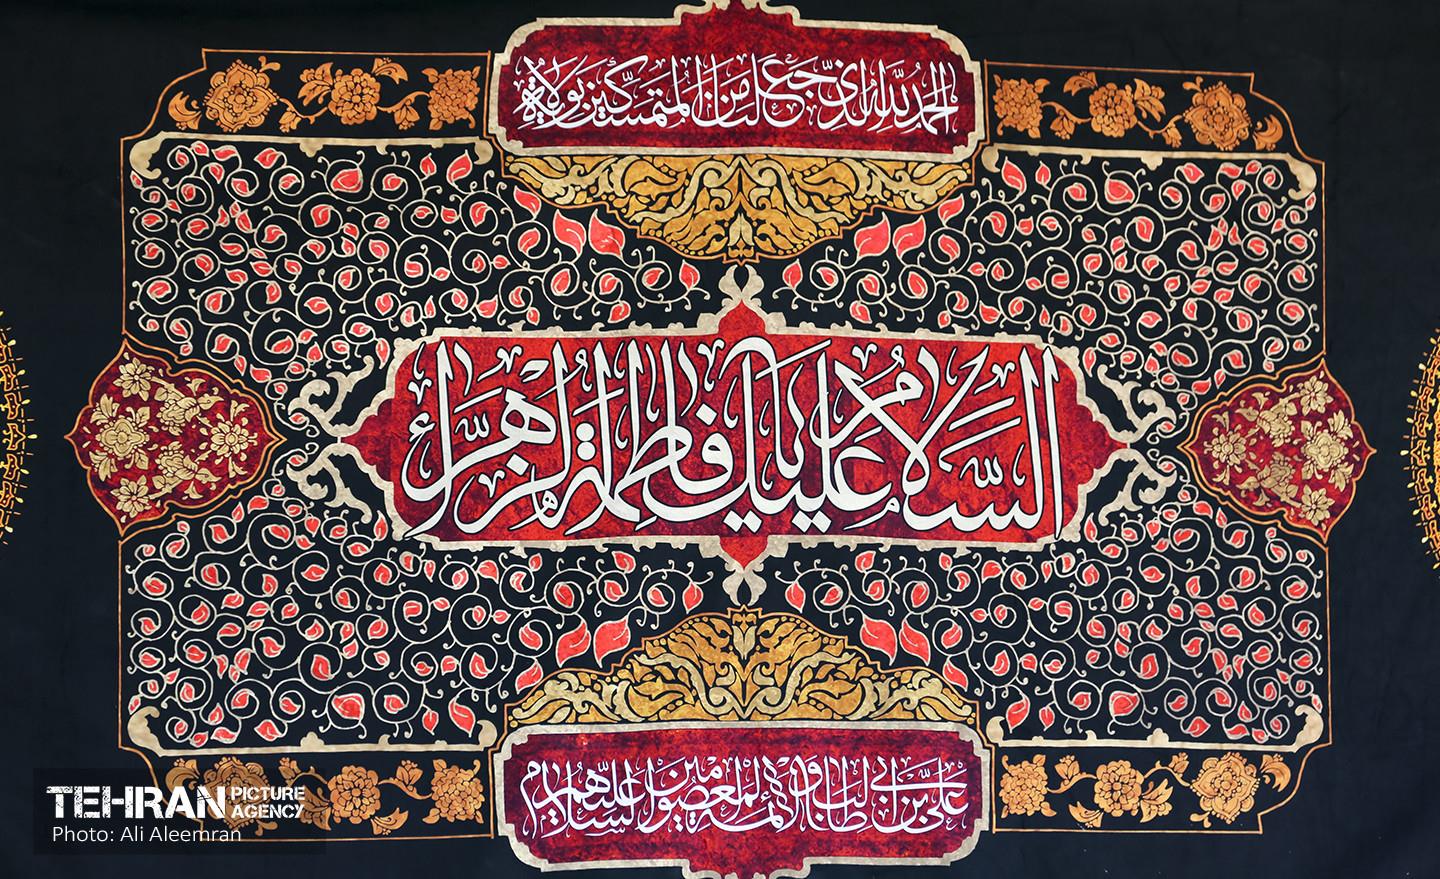 الحمد لله الذي جعلنا من المتمسكين بولاية
السلام عليك يا فاطمة الزهراء
علي بن ابي طالب و الائمة المعصومين عليهم السلام
TEHRAN PICTURE AGENCY
Photo: Ali Aleemran